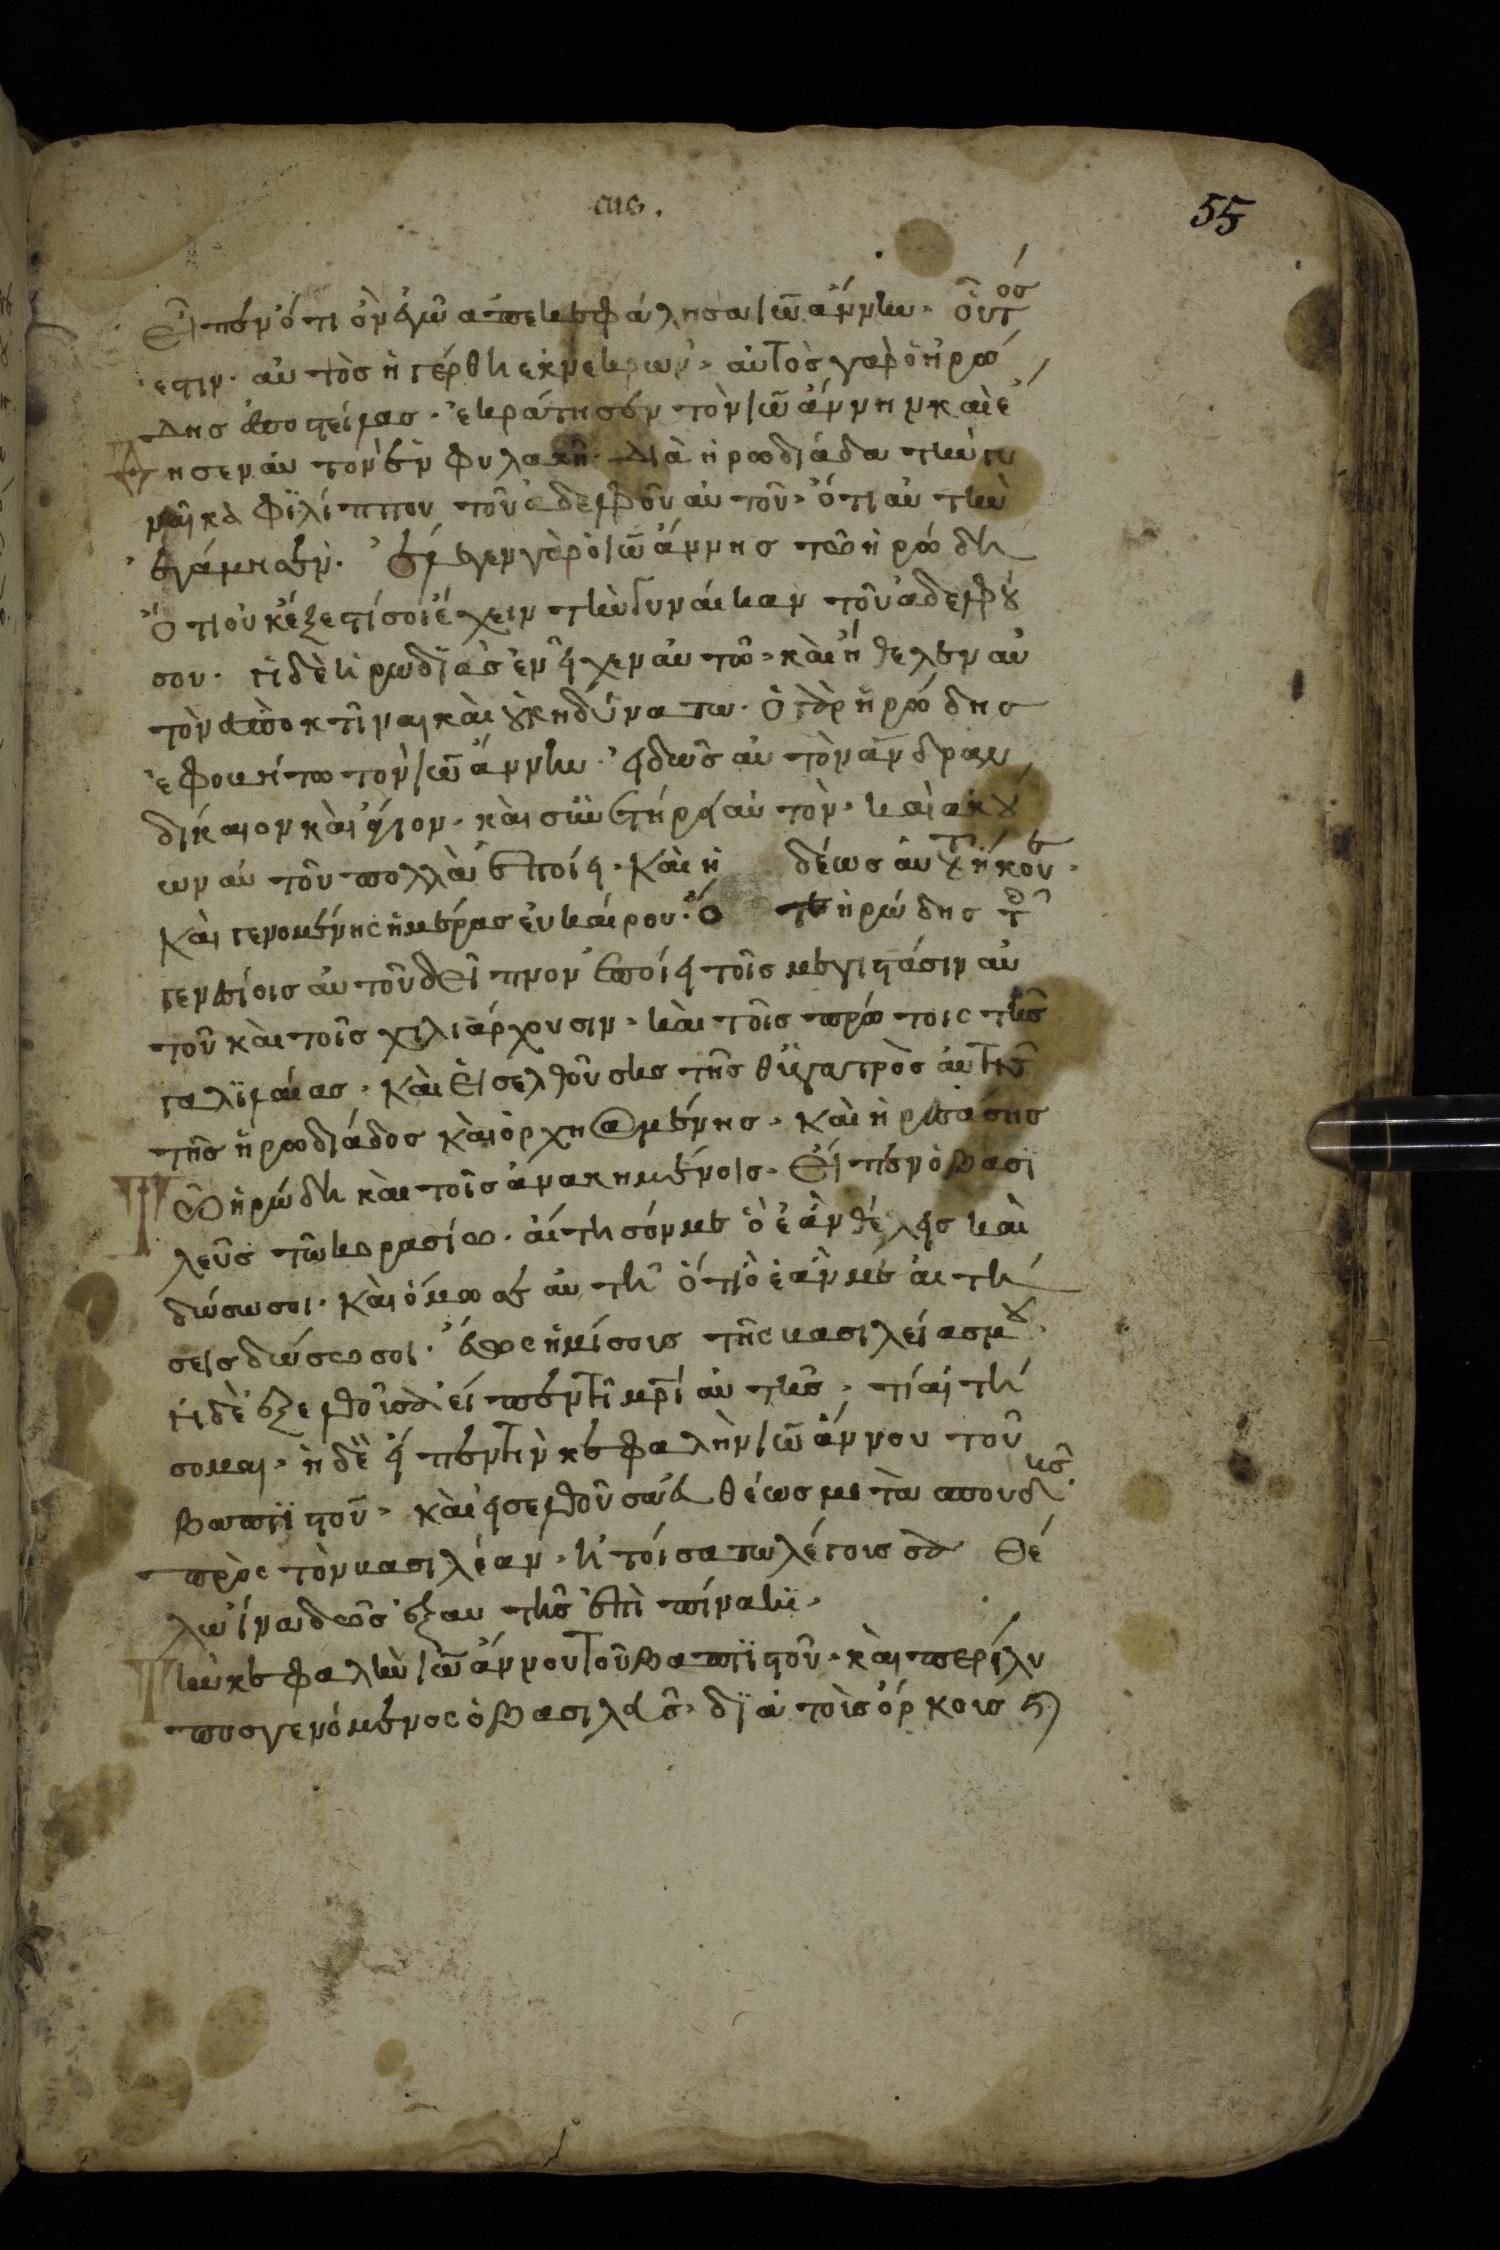 55
εἶπεν ὅτι ὃν ἐγὼ ἀπεκεφάλησα ἰω̅άννην· οὗτός
εστιν· αὐτὸς ἠγέρθη ἐκ νεκρων· αὐτὸς γαρ ὁ ἡρώ
δης ἀποστείλας· ἐκράτησεν τὸν ἰω̅άννην καὶ ἔ
δησεν αὐτον ἐν φυλακῆ· διὰ ἡρωδιάδα τὴν γυ
ναῖκα φιλίππου τοῦ ἀδελφοῦ αὐτοῦ· ὅτι αὐτὴν
ἐγάμησεν· ἔλεγεν γὰρ ὁ ἰω̅άννης τῶ ἡρώδη
ὅτι οὐκ ἔξεστί σοι ἔχειν τὴν γυναίκαν τοῦ ἀδελφοῦ
σου· ἡ δὲ ἡρωδιὰς ἐνεῖχεν αὐτῶ· καὶ ἤθελεν αὐ
τὸν ἀποκτῖναι καὶ οὐκ ηδύνατω· ὁ γὰρ ἡρώδης
ἐφοβήτο τὸν ἰω̅άννην· εἰδὼς αὐτὸν ἄνδραν
δίκαιον καὶ ἅγιον· καὶ συνετήρει αὐτὸν· καὶ ἀκού
ων αὐτοῦ πολλὰ ἐποίει· καὶ ἡδέως αὐτοῦ ἤκουεν·
καὶ γενομένης ἡμέρας εὐκαίρου· ὅτε ἡρώδης τοῖς
γενεσίοις αὐτοῦ δεῖπνον ἐποίει τοῖς μεγιστάσιν αὐ
τοῦ καὶ τοῖς χιλιάρχουσιν· καὶ τοῖς πρώτοις τῆς
γαλιλαίας· καὶ εἰσελθούσης τῆς θυγατρὸς αὐτῆς
τῆς ἡρωδιάδος καὶ ὀρχησαμένης· καὶ ἠρεσάσης
τῶ ἡρώδη καὶ τοῖς ἀνακημένοις· εἶπεν ὁ βασι
λεὺς τῶ κορασίω· αἴτησόν με ὃ ἐὰν θέλης καὶ
δώσω σοι· καὶ ὄμοσε αὐτῆ ὅτι ὃ ἐὰν με αἰτή
σεις δώσω σοι· ἕως ἡμίσους τῆς βασιλείας μου·
ἡ δὲ ἐξελθοῦσα εἶπεν τῆ μρι αὐτῆς· τί αἰτή
σομαι· ἡ δὲ εἶπεν τὴν κεφαλὴν ἰω̅άννου τοῦ
βαπτιστοῦ· καὶ εἰσελθοῦσα εὐθέως μετὰ σπουδῆς
πρὸς τὸν βασιλέαν· ἠτήσατω λέγουσα θέ
λω ἵνα δῶς ἐξαυτῆς ἐπὶ πίνακι·
τὴν κεφαλὴν ἰω̅άννου τοῦ βαπτιστοῦ· καὶ περίλυ
πος γενόμενος ὁ βασιλεὺς· διὰ τοὺς ὅρκους καὶ